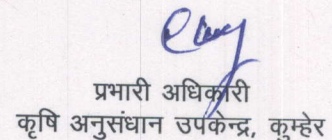 प्रभारी अधिकारी
कृषि अनुसंधान उपकेन्द्र, कुम्हेर